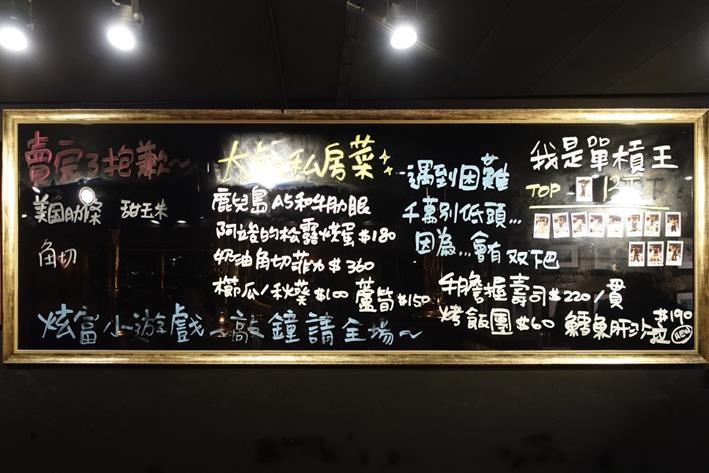 賣完了抱歉~
美國肋條 甜玉米
角切
私房菜
鹿兒島A5和牛肋眼
阿婆的松露烘蛋$180
奶油角切菲力$360
櫛瓜/秋葵$100 蘆筍$150
遇到困難
千萬別低頭...
因為...會有双下巴
我是單槓王
TOP
牛膽握壽司$220/貫
烤飯團$60 鱈魚肝沙拉$190
NEW
炫富小遊戲 敲鐘請全場~